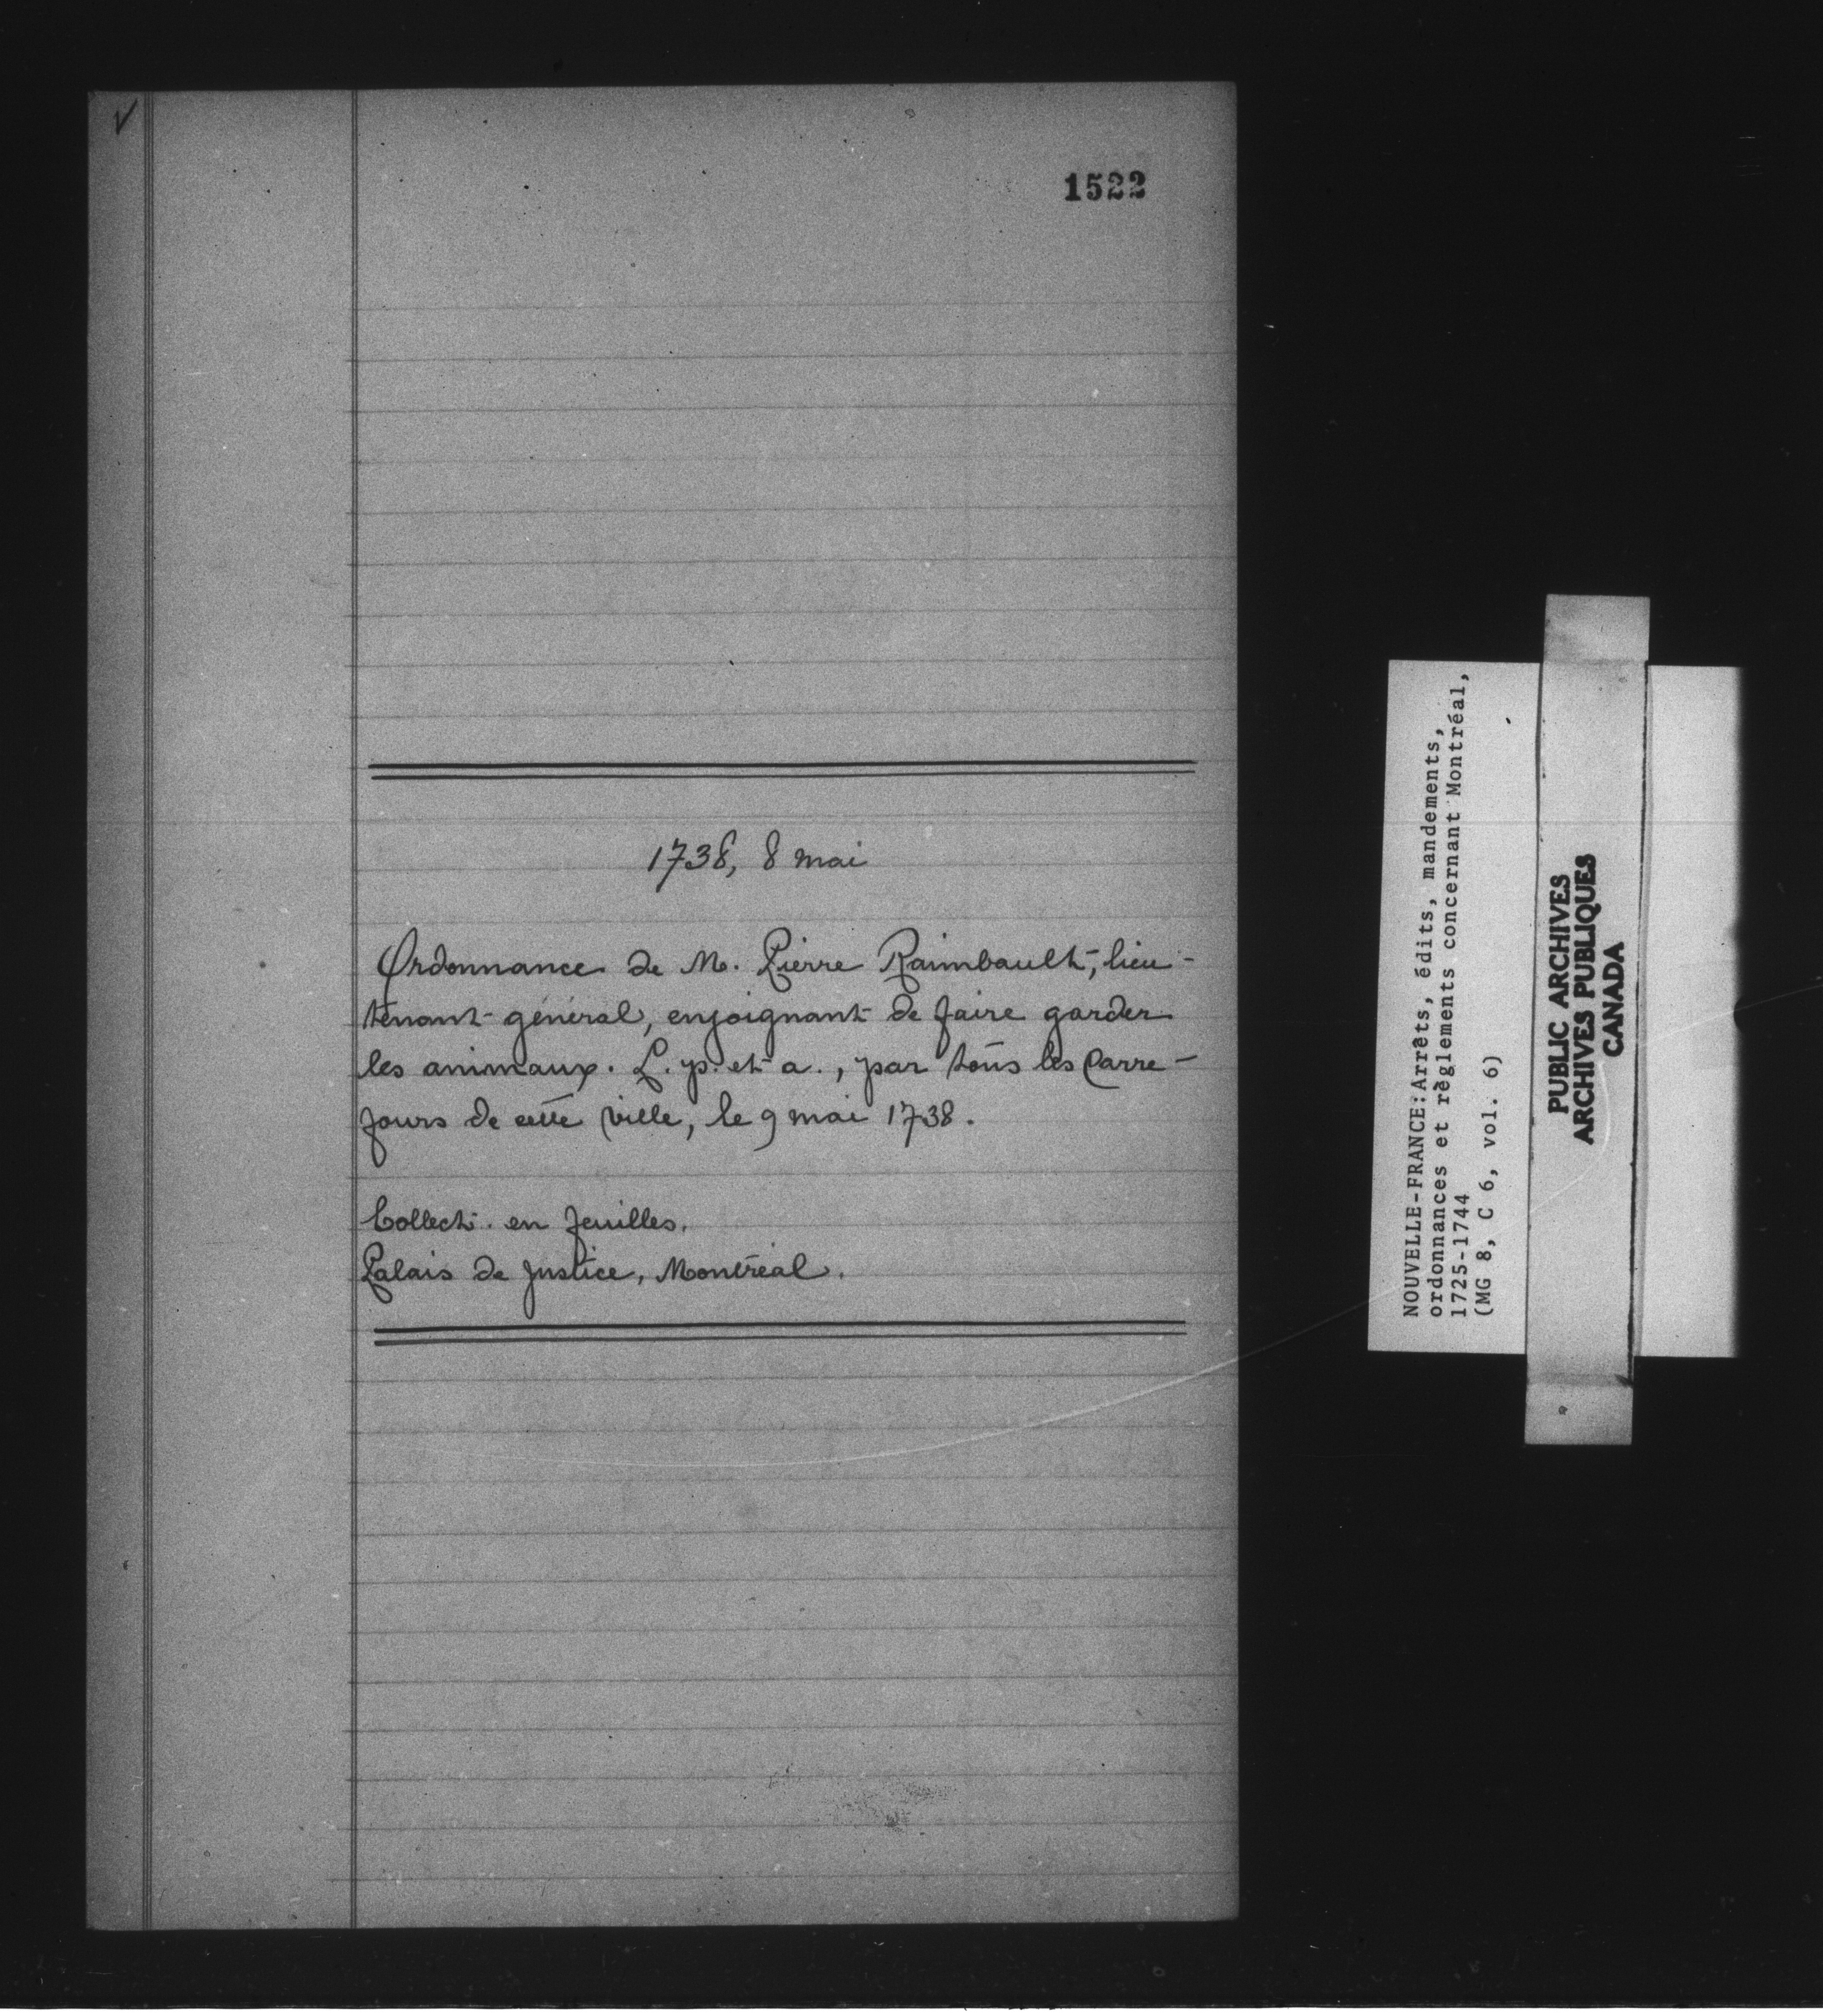 1522
1738, 8 mai
Ordonnance de M. Pierre Raimbault, lieu-
tenant général, enjoignant de faire garder
les animaux. L. p. et a., par tous les carre-
fours de cette ville, le 9 mai 1738.
Collect. en feuilles.
Palais de Justice, Montréal.
NOUVELLE-FRANCE: Arrêts, édits, mandements,
ordonnances et règlements concernant Montréal,
1725-1744
(MG 8, C 6, vol. 6)
PUBLIC ARCHIVES
ARCHIVES PUBLIQUES
CANADA